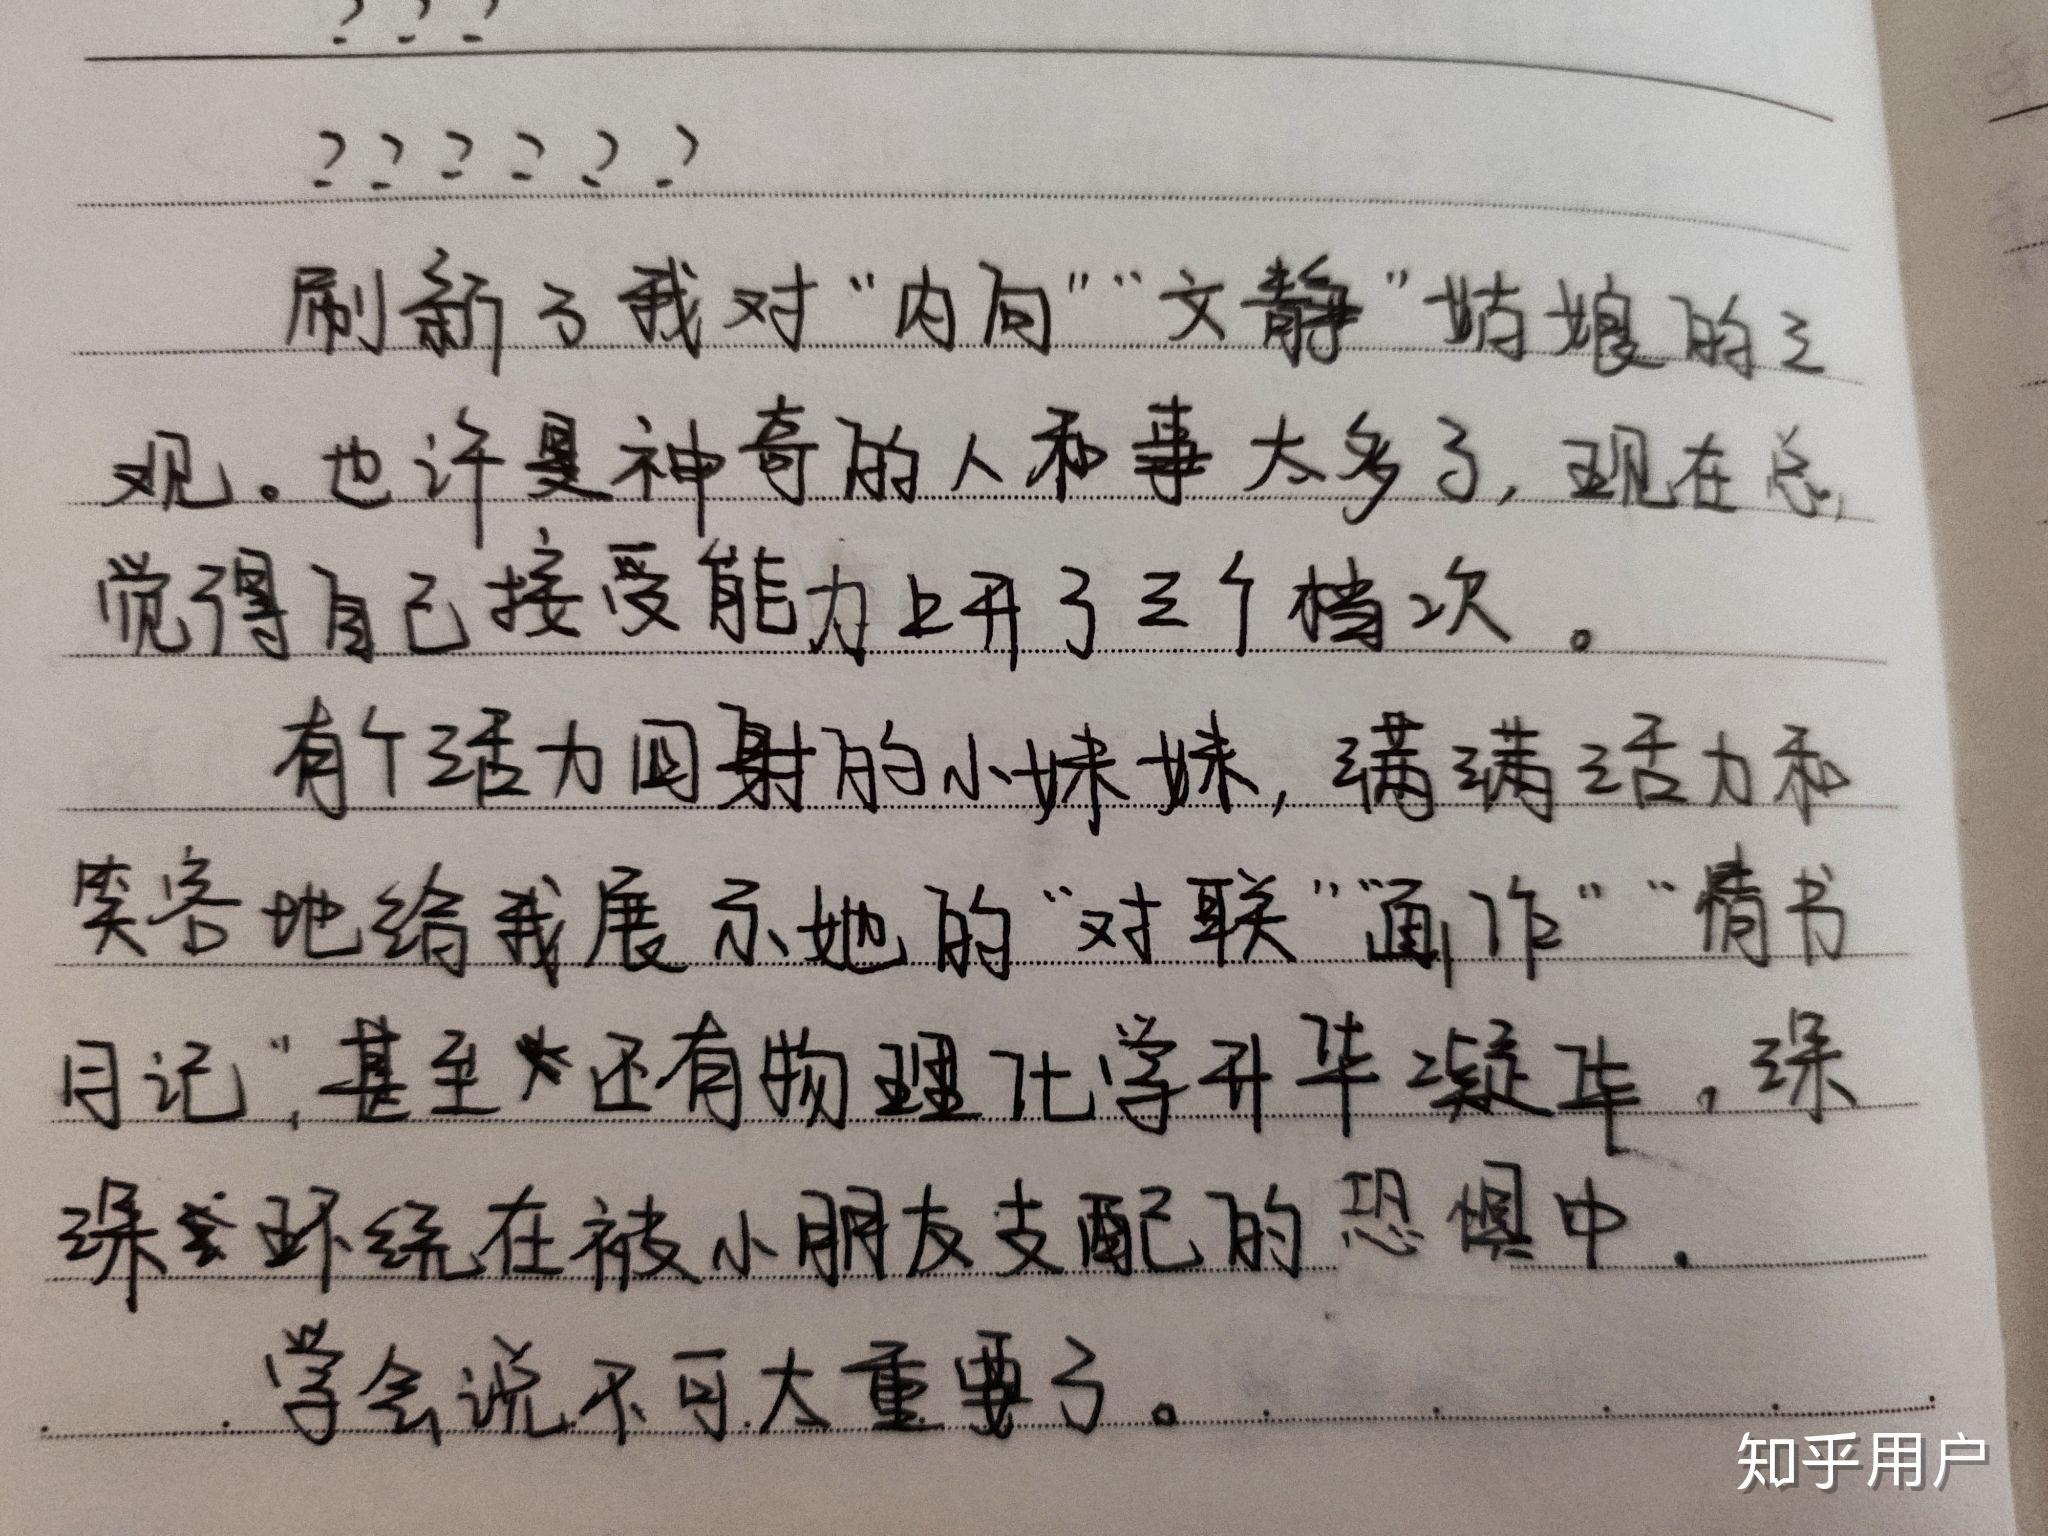 ???
??????
刷新了我对“内向”“文静”姑娘的三
观。也许是神奇的人和事太多了,现在总
觉得自己接受能力上升了三个档次。
有个活力四射的小妹妹,满满活力和
笑容地给我展示她的“对联”“画作”“情书
日记”,甚至还有物理化学升华凝华,深
深环绕在被小朋友支配的恐惧中.
学会说不可太重要了。
知乎用户